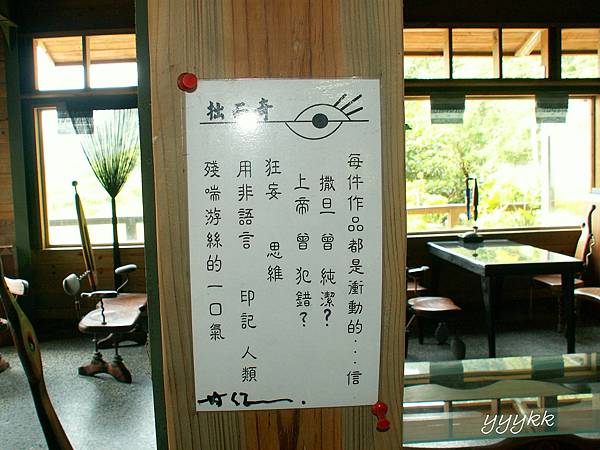 拙而奇
每件作品都是衝動的...信
撒旦 曾 純潔?
上帝 曾 犯錯?
狂妄 思維
用非語言 印記 人類
殘喘游絲的一口氣
yyykk